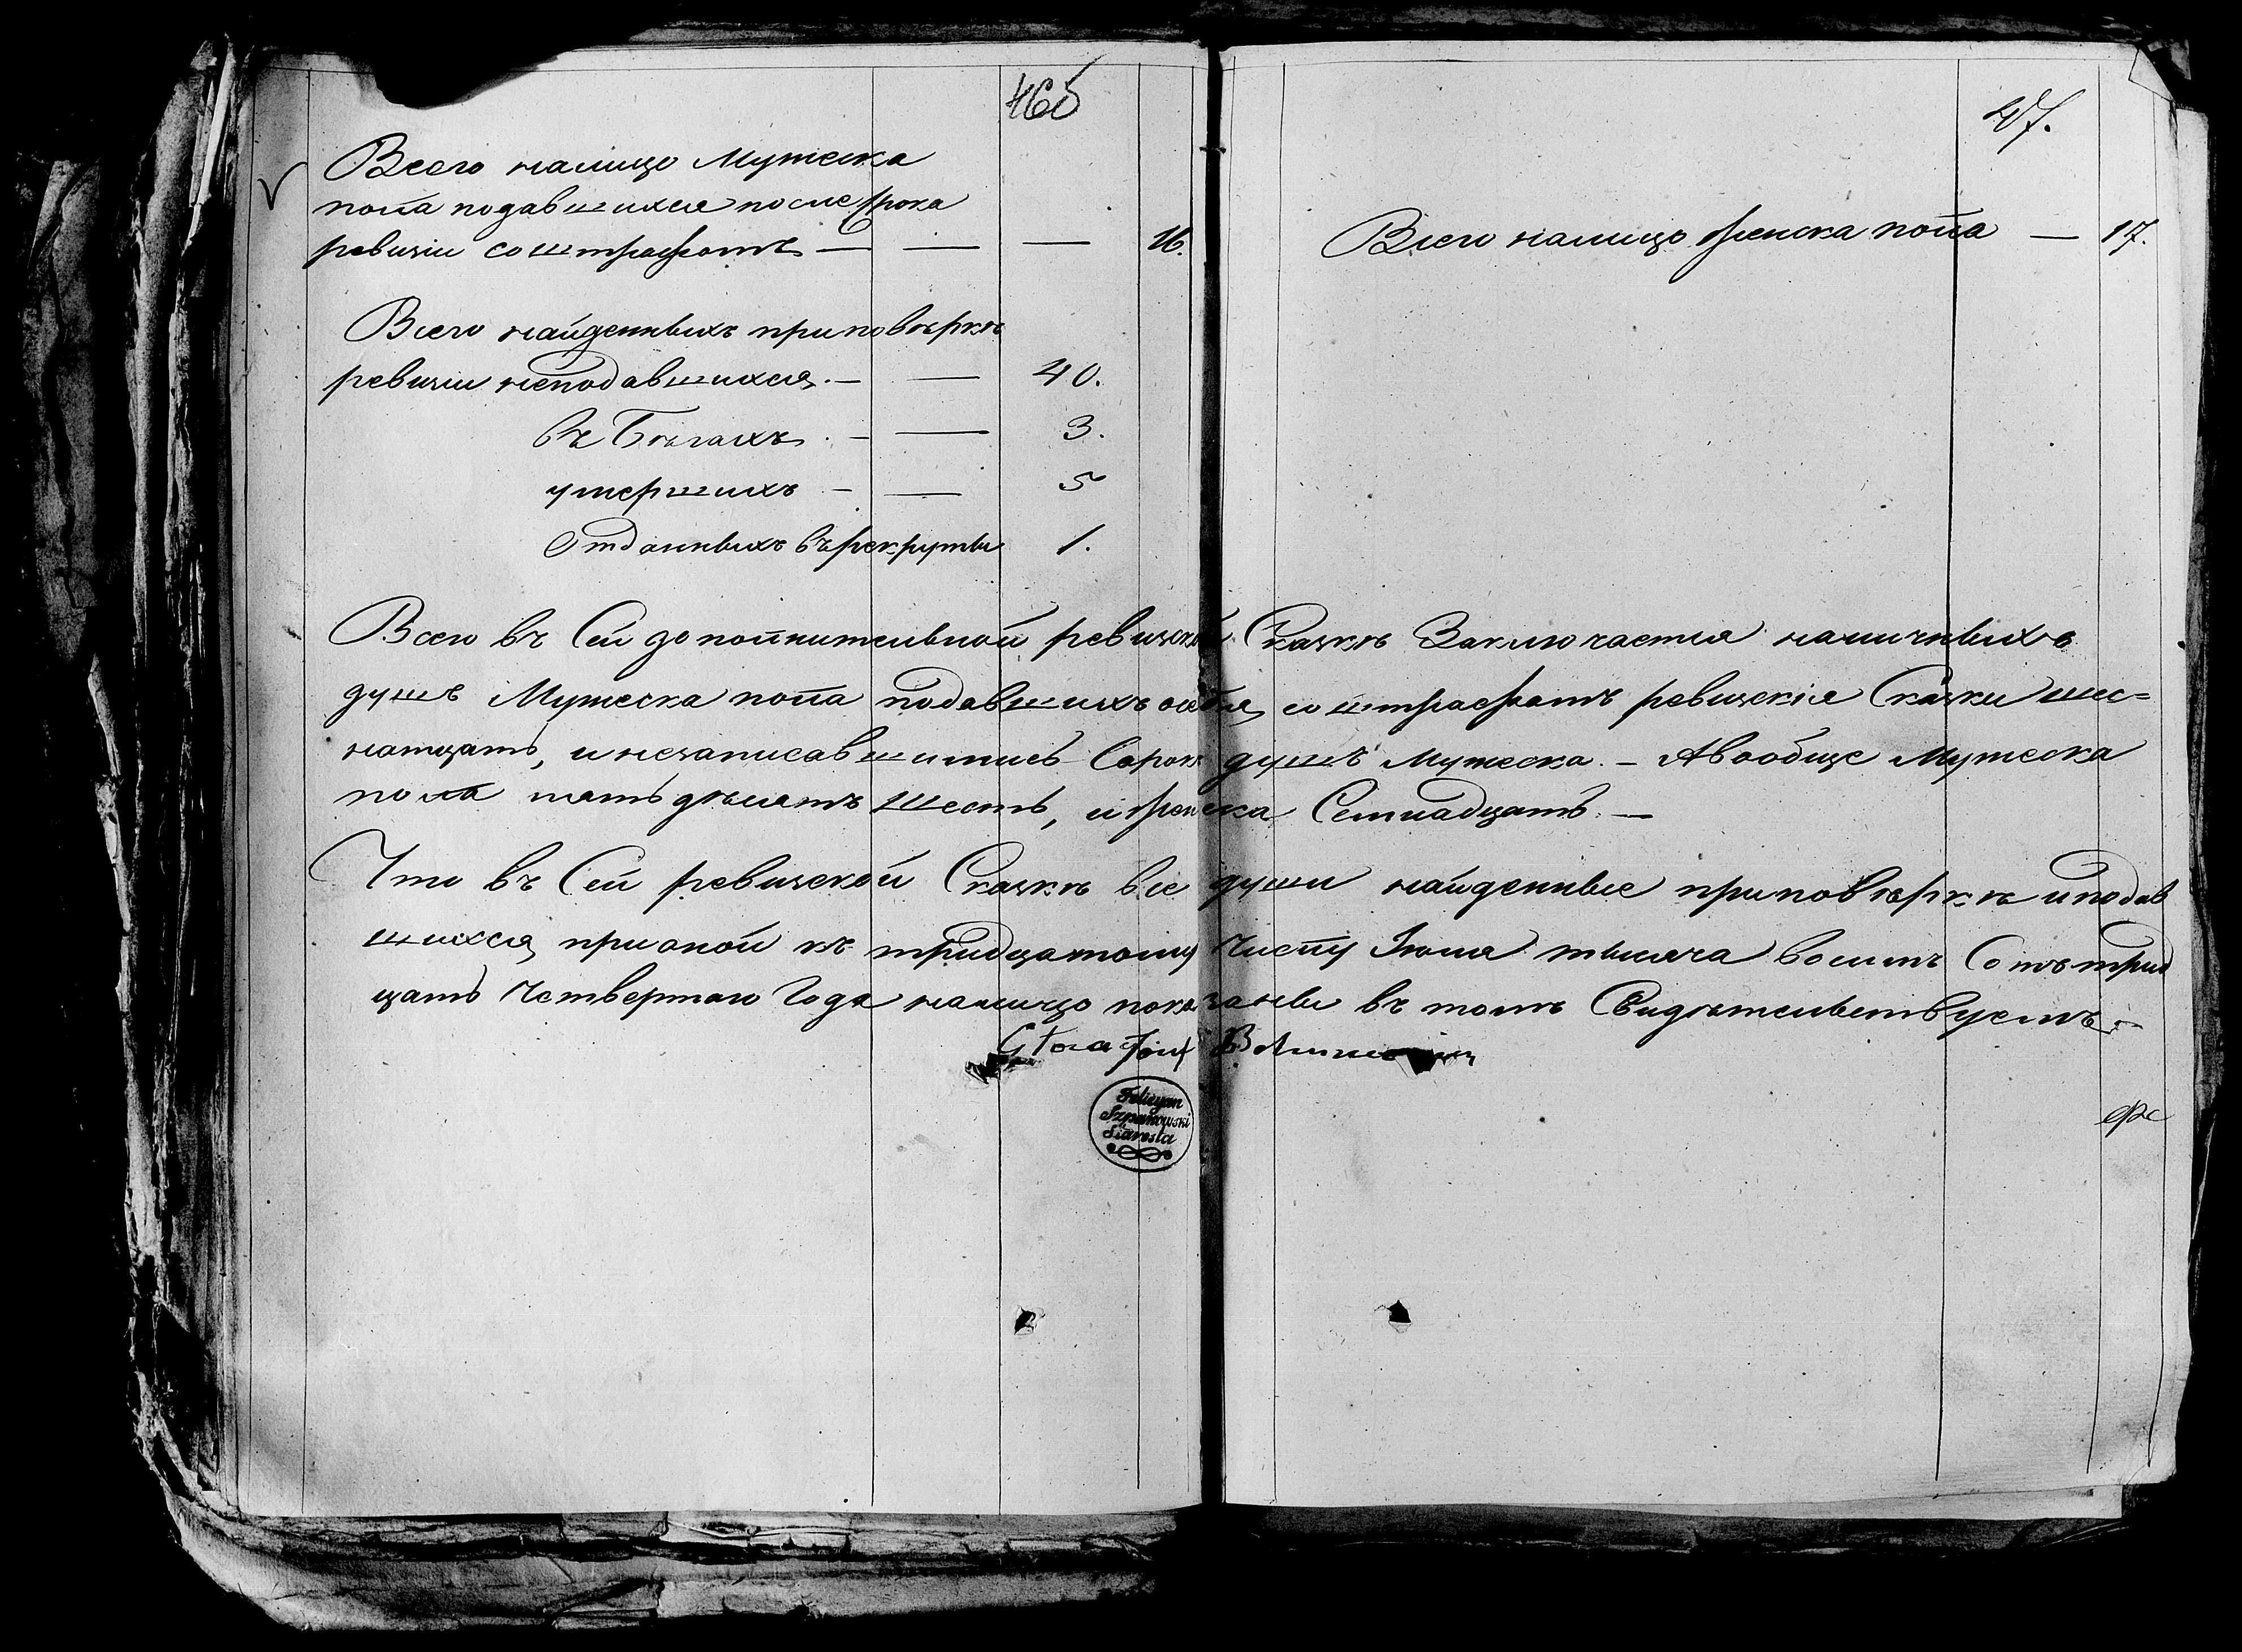 46б
47.
Всего налицо Мужеска
пола подавшихся после срока
ревизіи со штрафомъ — — — 16.
Всего налицо женска пола — 17.
Всего найденныхъ при повѣркѣ
ревизіи неподавшихся. — — 40.
въ Бѣгахъ. — — 3.
умершихъ — — 5
Отданныхъ въ рекруты 1.
Всего въ Сей дополнительной ревизской Сказкѣ Заключается наличныхъ
душъ Мужеска пола подавшихъ о себѣ со штрафомъ ревизскія Сказки шес=
натцать, и незаписавшимись Сорокъ душъ Мужеска. — А вообще Мужеска
пола пять десятъ шесть, и женска Семнадцать. —
Что въ Сей ревизской Сказкѣ все души найденные при повѣркѣ и подав
шихся при оной къ тридцатому Числу Іюня тысяча восимъ Сотъ трид
цать Четвертаго Года налицо показаны въ томъ Свидѣтельствуемъ
Felicyan
Szpakowski
Starosta